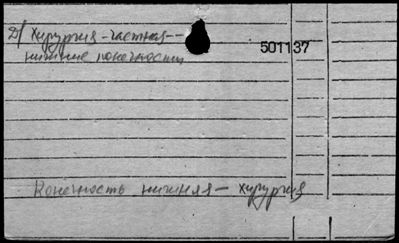 Д/ Хирургия - частная --
501137
нижние конечности
Конечность нижняя - хирургия